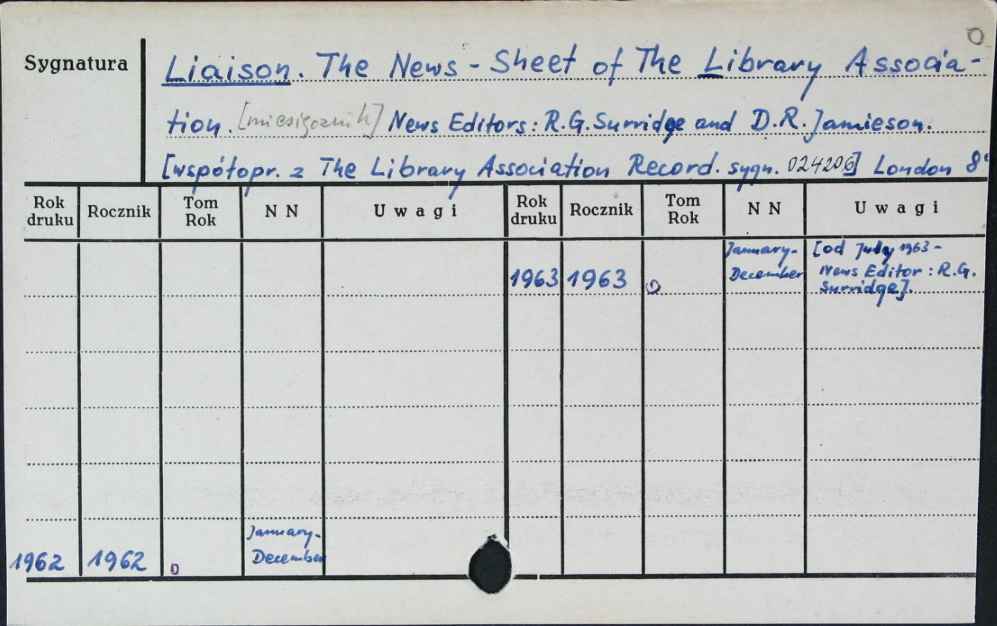 Sygnatura
Liaison. The News-Sheet of The Library Associa-
tion. [miesięcznik] News Editors: R.G. Surridge and D.R. Jamieson.
[współopr. z The Library Association Record. sygn. 024206] London 8°
Rok druku Rocznik Tom Rok NN Uwagi Rok druku Rocznik Tom Rok NN Uwagi
1963 1963 0 January-
December [od July 1963 -
News Editor: R.G.
Surridge].
1962 1962 0 January-
December